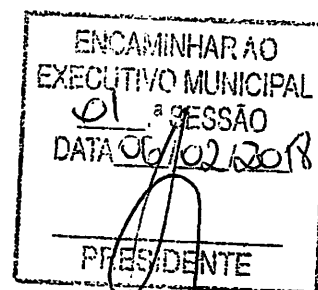 ENCAMINHAR AO
EXECUTIVO MUNICIPAL
01 .ª SESSÃO
DATA 06/02/2018
PRESIDENTE